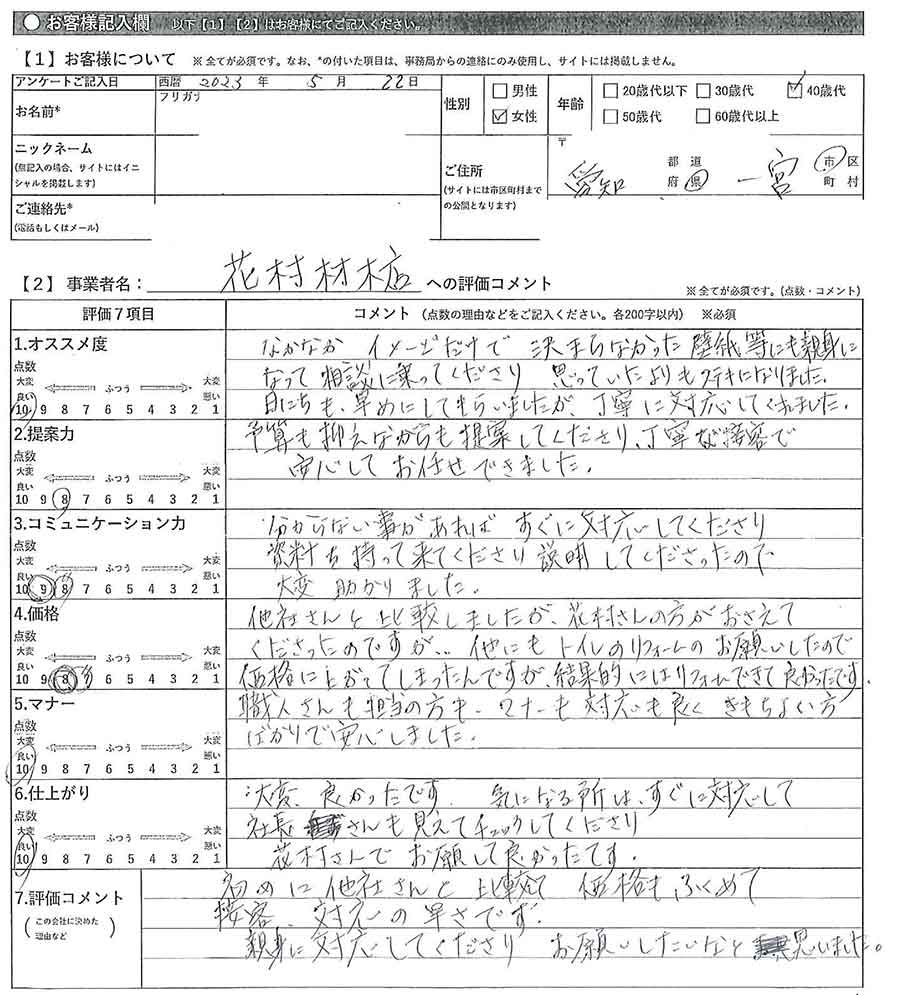 ● お客様記入欄 以下【1】【2】はお客様にてご記入ください。
【1】お客様について ※全てが必須です。なお、*の付いた項目は、事務局からの連絡にのみ使用し、サイトには掲載しません。
アンケートご記入日 西暦 2023 年 5 月 22 日
お名前* フリガナ
性別 □男性 ☑女性
年齢 □20歳代以下 □30歳代 ☑40歳代
□50歳代 □60歳代以上
ニックネーム
(無記入の場合、サイトにはイニシャルを掲載します)
ご連絡先*
(電話もしくはメール)
ご住所
(サイトには市区町村までの公開となります)
〒
愛知 都道府県 一宮 市区町村
【2】事業者名： 花村材木店 への評価コメント
※全てが必須です。(点数・コメント)
評価7項目 コメント (点数の理由などをご記入ください。各200字以内) ※必須
1.オススメ度
点数
大変良い ふつう 大変悪い
10 9 8 7 6 5 4 3 2 1
なかなか イメージだけで 決まらなかった 壁紙等にも親身に
なって相談に乗ってくださり 思っていたよりもステキになりました。
日にちも、早めにしてもらいましたが、丁寧に対応してくれました。
2.提案力
点数
大変良い ふつう 大変悪い
10 9 8 7 6 5 4 3 2 1
予算も抑えながらも提案してくださり、丁寧な接客で
安心して お任せできました。
3.コミュニケーション力
点数
大変良い ふつう 大変悪い
10 9 8 7 6 5 4 3 2 1
分からない事があれば すぐに対応してくださり
資料も持って来てくださり説明してくださったので
大変 助かりました。
4.価格
点数
大変良い ふつう 大変悪い
10 9 8 7 6 5 4 3 2 1
他社さんと比較しましたが、花村さんの方がおさえて
くださったのですが… 他にもトイレのリフォームのお願いしたので
価格に上がってしまったんですが、結果的にはリフォームできて良かったです。
5.マナー
点数
大変良い ふつう 大変悪い
10 9 8 7 6 5 4 3 2 1
職人さんも担当の方も、マナーも対応も良く きもちよい方
ばかりで安心しました。
6.仕上がり
点数
大変良い ふつう 大変悪い
10 9 8 7 6 5 4 3 2 1
大変、良かったです。 気になる所は、すぐに対応して
社長さんも見えてチェックしてくださり
花村さんで お願して良かったです。
7.評価コメント
(この会社に決めた理由など)
初めに他社さんと比較して 価格もふくめて
接客、対応の早さです。
親身に対応してくださり お願いしたいなと思いました。